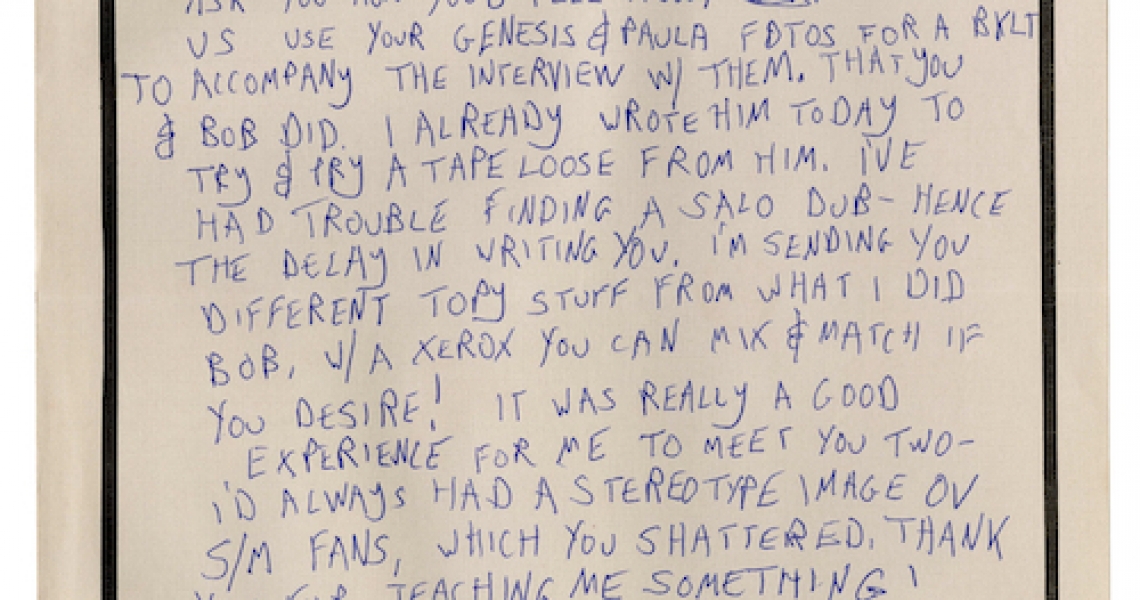 ASK YOU HOW YOU'D FEEL
US USE YOUR GENESIS & PAULA FOTOS FOR A BKLT
TO ACCOMPANY THE INTERVIEW W/ THEM. THAT YOU
& BOB DID. I ALREADY WROTE HIM TODAY TO
TRY & PRY A TAPE LOOSE FROM HIM. I'VE
HAD TROUBLE FINDING A SALO DUB- HENCE
THE DELAY IN WRITING YOU. I'M SENDING YOU
DIFFERENT TOPY STUFF FROM WHAT I DID
BOB, W/A XEROX YOU CAN MIX & MATCH IF
YOU DESIRE! IT WAS REALLY A GOOD
EXPERIENCE FOR ME TO MEET YOU TWO-
I'D ALWAYS HAD A STEREOTYPE IMAGE OV
S/M FANS, WHICH YOU SHATTERED. THANK
YOU FOR TEACHING ME SOMETHING!